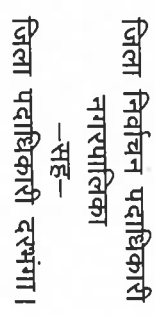 जिला निर्वाचन पदाधिकारी
नगरपालिका
–सह–
जिला पदाधिकारी दरभंगा।